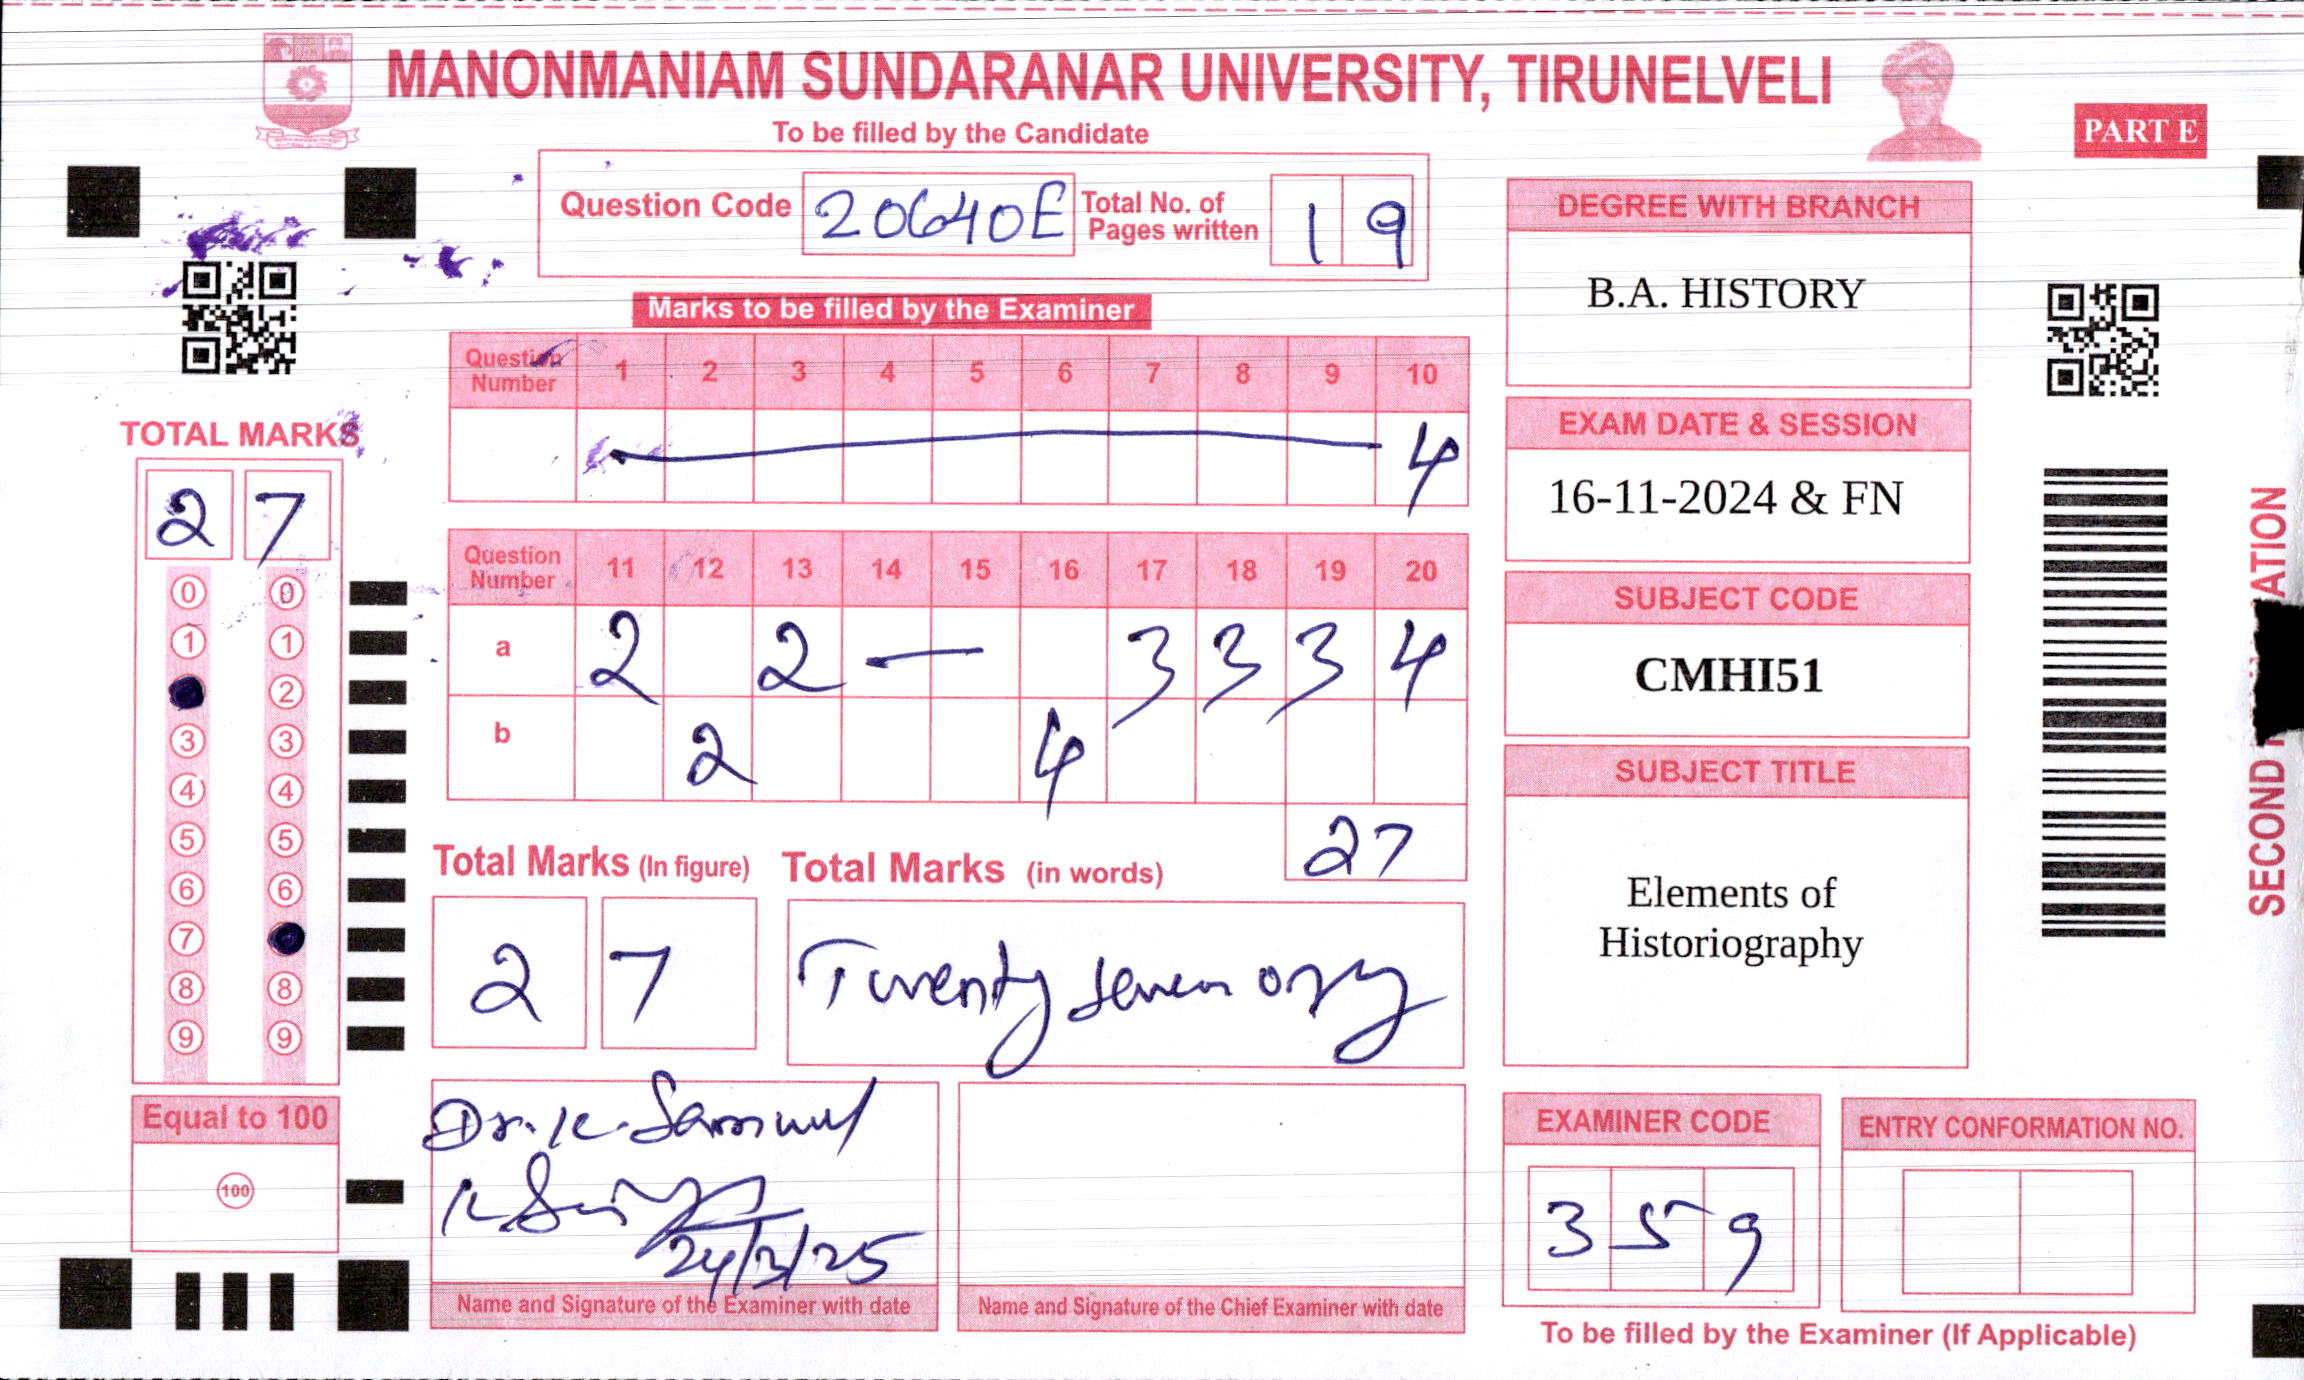 MANONMANIAM SUNDARANAR UNIVERSITY, TIRUNELVELI
To be filled by the Candidate
PART E
Question Code 20640E Total No. of Pages written 1 9
Marks to be filled by the Examiner
Question Number 1 2 3 4 5 6 7 8 9 10
4
Question Number 11 12 13 14 15 16 17 18 19 20
a 2 2 — 3 3 3 4
b 2 4
27
TOTAL MARKS
2 7
0 0
1 1
2
3 3
4 4
5 5
6 6
7
8 8
9 9
Equal to 100
100
Total Marks (In figure) Total Marks (in words)
2 7 Twenty seven only
Dr. K. Samuel
24/3/25
Name and Signature of the Examiner with date
Name and Signature of the Chief Examiner with date
DEGREE WITH BRANCH
B.A. HISTORY
EXAM DATE & SESSION
16-11-2024 & FN
SUBJECT CODE
CMHI51
SUBJECT TITLE
Elements of
Historiography
EXAMINER CODE
3 5 9
ENTRY CONFORMATION NO.
To be filled by the Examiner (If Applicable)
SECOND